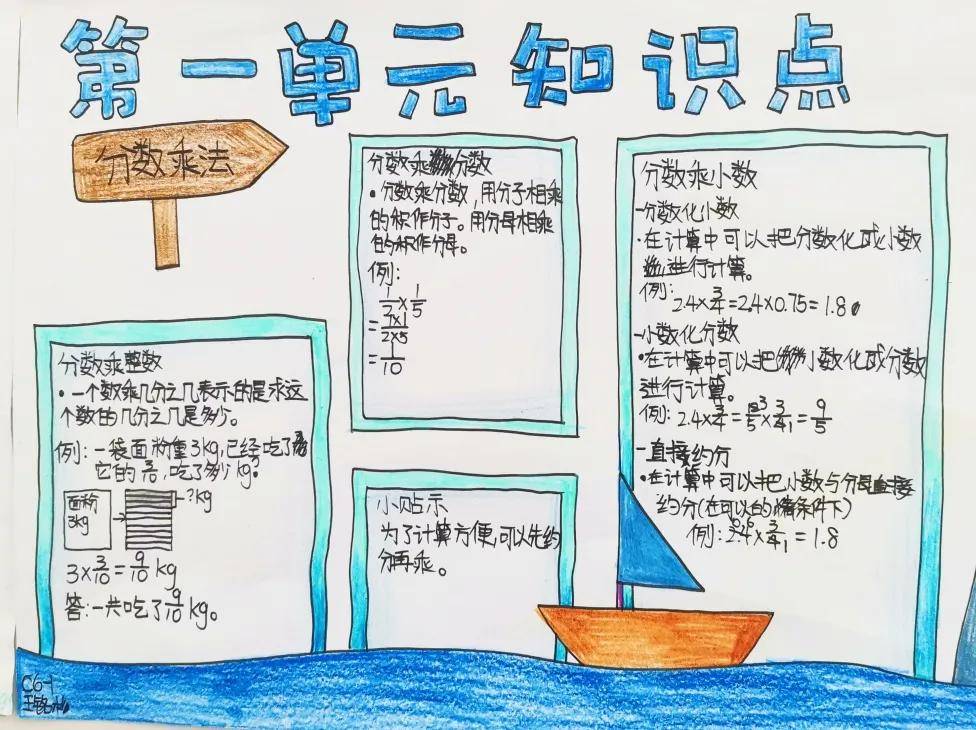 第一单元知识点
分数乘法
分数乘整数
·一个数乘几分之几表示的是求这
个数的几分之几是多少。
例:一袋面粉重3kg,已经吃了
它的,吃了多少kg?
面粉
3kg
?kg
3×3/10=9/10 kg
答:一共吃了9/10 kg。
分数乘分数
·分数乘分数,用分子相乘
的积作分子。用分母相乘
的积作分母。
例:
1/2×1/5
=1×1/2×5
=1/10
小贴示
为了计算方便,可以先约
分再乘。
分数乘小数
-分数化小数
·在计算中可以把分数化成小数
进行计算。
例:
2.4×3/4=2.4×0.75=1.8
-小数化分数
·在计算中可以把小数化成分数
进行计算。
例:2.4×3/4=12 3/5×3/4 1=9/5
-直接约分
·在计算中可以把小数与分母直接
约分(在可以的情条件下)
例:2.4 0.6×3/4 1=1.8
C6-1